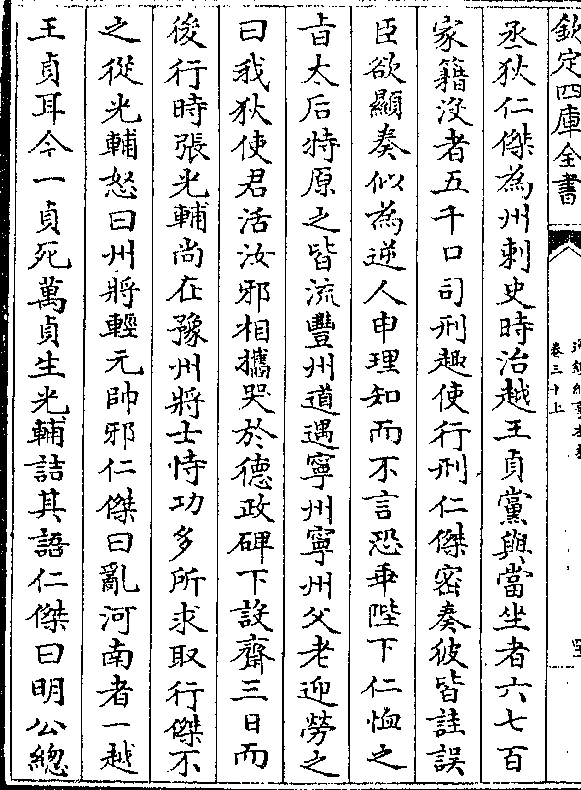 欽定四庫全書
卷三十上
丞狄仁傑為州刺史時治越王貞黨與當坐者六七百
家籍没者五千口司刑趣使行刑仁傑密奏彼皆詿誤
臣欲顯奏似為逆人申理知而不言恐乖陛下仁恤之
㫖太后特原之皆流豐州道遇寧州寧州父老迎勞之
曰我狄使君活汝邪相攜哭於德政碑下設齋三日而
後行時張光輔尚在豫州將士恃功多所求取行傑不
之從光輔怒曰州將輕元帥邪仁傑曰亂河南者一越
王貞耳今一貞死萬貞生光輔詰其語仁傑曰明公總